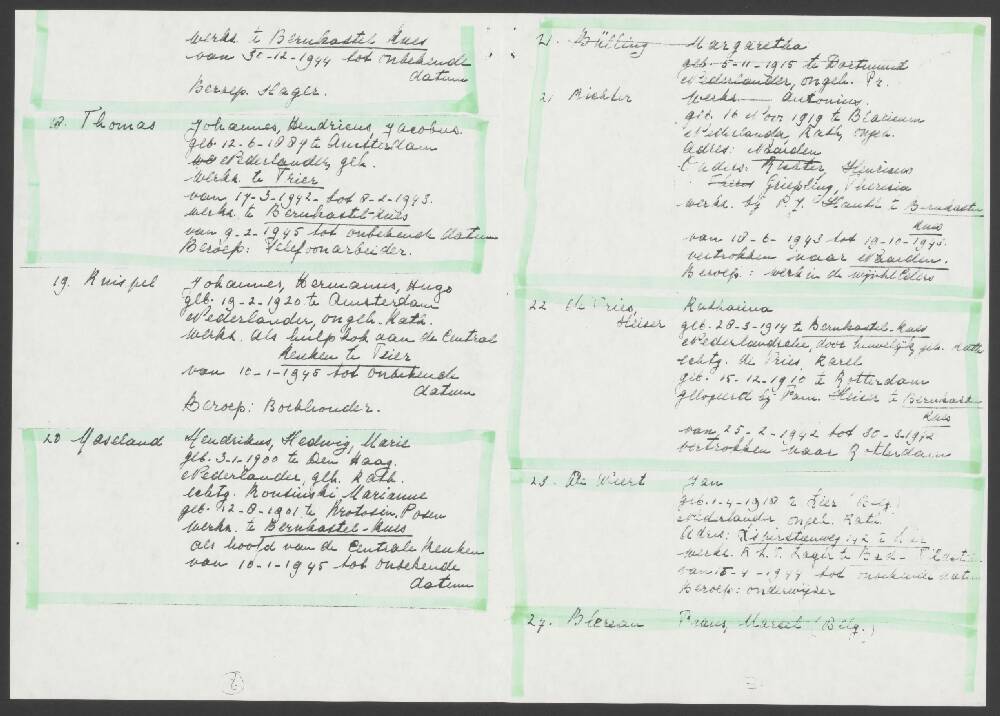 werkz. te Bernkastel Kues
van 30-12-1944 tot onbekende
datum
Beroep. Slager.
18. Thomas Johannes, Hendricus, Jacobus.
geb 12-6-1889 te Amsterdam
Nederlander, geh.
werkz. te Trier
van 17-3-1942- tot 8-2-1943.
werkz. te Bernkastel-Kues
van 9-2-1945 tot onbekende datum
Beroep: Telefoonarbeider.
19. Knispel Johannes, Hermanus, Hugo
geb. 19-2-1920 te Amsterdam
Nederlander, ongeh. Kath.
werkz. als hulpkok aan de Central
Keuken te Trier
van 10-1-1945 tot onbekende
datum
Beroep: Boekhouder.
20 Maseland Hendrikus, Hedwig, Marie
geb. 3-1-1900 te Den Haag.
Nederlander, geh. Kath.
echtg. Rousinski Marianne
geb. 12-8-1901 te Krotosin, Posen
werkz. te Bernkastel-Kues
als hoofd van de Centrale Keuken
van 10-1-1945 tot onbekende
datum
21. Bülling Margaretha
geb. 5-11-1915 te Dortmund
Nederlander, ongeh. Pr.
21 Richter Werkz. Antonius.
geb. 16 Nov 1919 te Blaricum
Nederlander, Kath, ongeh.
Adres: Naarden
Ouders: Richter, Henricus
Griepling, Theresia
werkz. bij P.J. te Bernkastel
Kues
van 18-6-1943 tot 19-10-1943.
vertrokken naar Naarden.
Beroep: werk in de wijnkelders
22 de Vries, Heiser Katharina
geb. 28-3-1914 te Bernkastel-Kues
Nederlandsche, door huwelijk, geh. Kath
echtg. de Vries, Karel
geb. 15-12-1910 te Rotterdam
gelogeerd bij Fam. Heiser te Bernkastel
Kues
van 25-2-1942 tot 30-3-1942
vertrokken naar Rotterdam
23. De Weert Jan
geb. 1-4-1918 te Lier (Belg.)
Nederlander, ongeh. Kath.
Adres: 142 te Lier
werkz. Lager te
van 15-4-1944 tot onbekende datum
Beroep: onderwijzer
24. Frans, Marcel (Belg.)